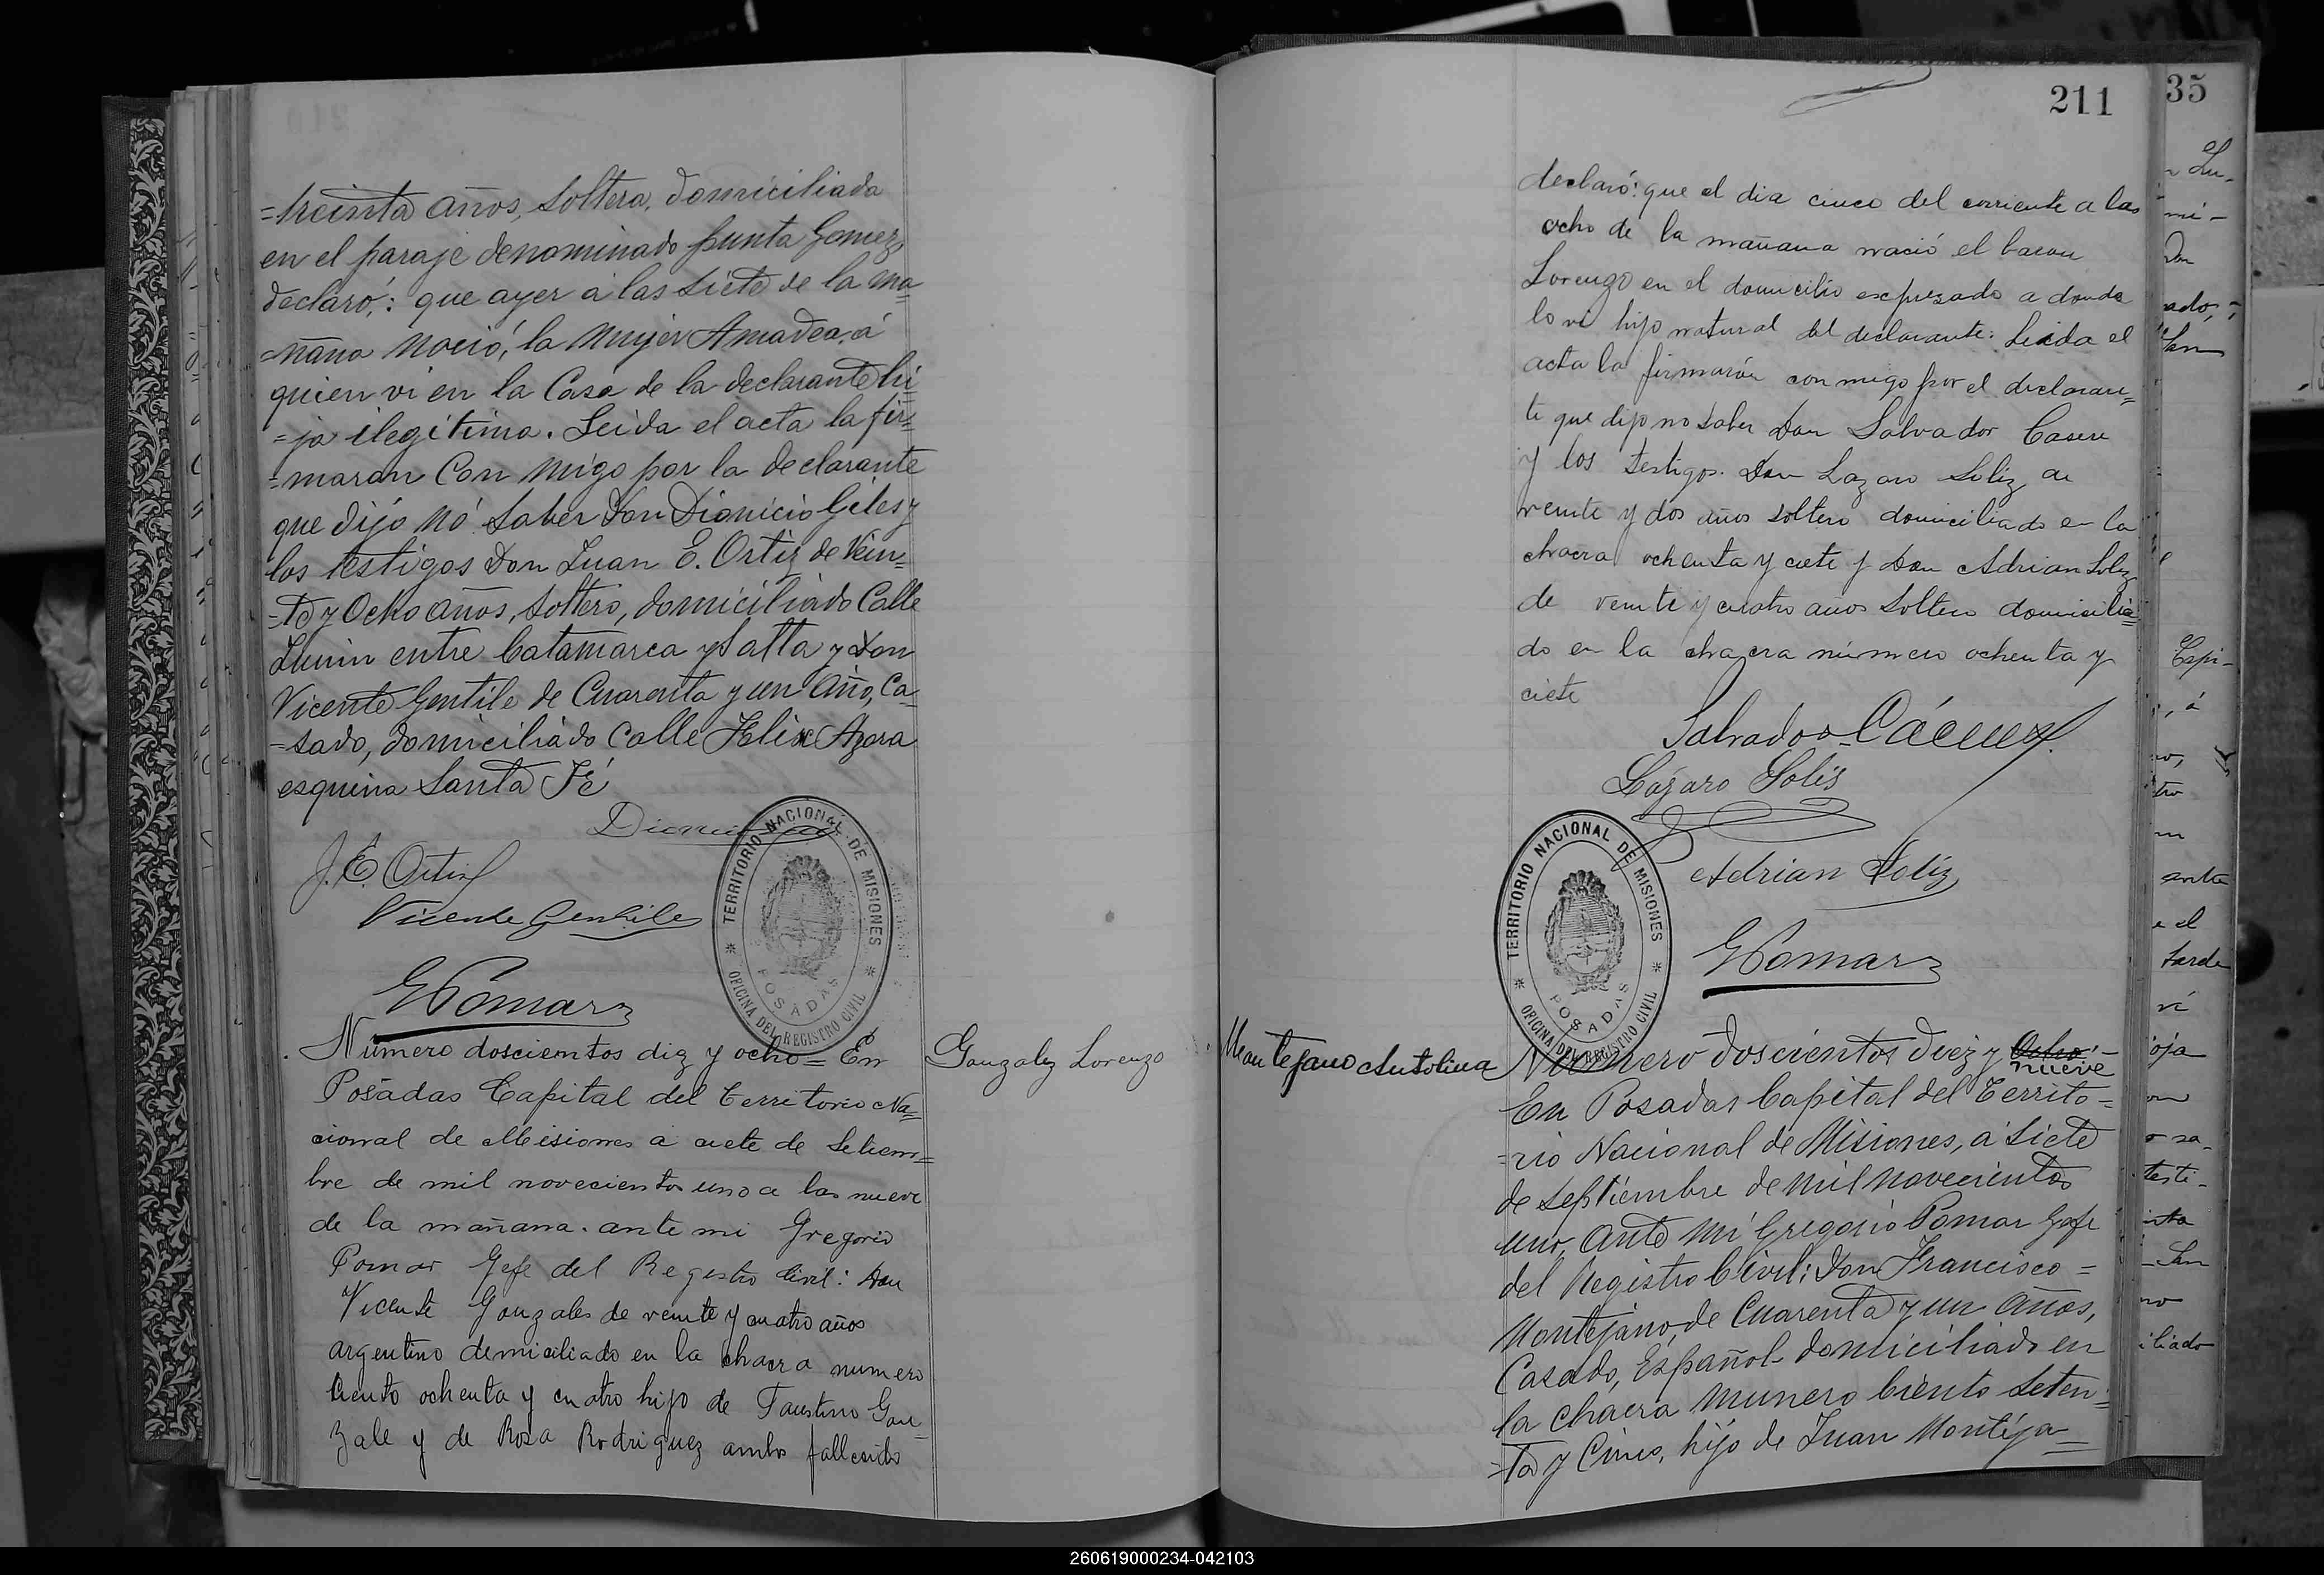 =treinta años, soltera, domiciliada
en el paraje denominado punta Gomez,
declaró,: que ayer á las siete de la ma=
=ñana nació, la mujer Amadea, á
quien vi en la Casa de la declarante hi=
=ja ilegitima. Leida el acta la fir=
=maran Con migo por la declarante
que dijo nó saber Don Dionicio Giles y
los testigos Don Juan E. Ortiz de Vein=
=te y Ocho años, soltero, domiciliado Calle
Junin entre Catamarca y Salta y Don
Vicente Gentile de Cuarenta y un Año, Ca=
=sado, domiciliado Calle Felix Azara
esquina Santa Fé
J. E. Ortiz
Vicente Gentile
TERRITORIO NACIONAL DE MISIONES
POSADAS
OFICINA DEL REGISTRO CIVIL
GPomar
Número doscientos diz y ocho = En
Posadas Capital del Territorio Na=
cional de Misiones a ciete de Setiem=
bre de mil novecientos uno a las nueve
de la mañana. ante mi Gregorio
Pomar Gefe del Registro Civil: Don
Vicente Gonzales de veinte y cuatro años
argentino demiciliado en la chacra numero
Ciento ochenta y cuatro hijo de Faustino Gon=
zale y de Rosa Rodriguez ambos fallecido
Gonzalez Lorenzo
211
declaró: que el dia cinco del corriente a las
ocho de la mañana nació el baron
Lorenzo en el domicilio expresado a donde
lo vi hijo natural del declarante: Leida el
acta la firmarón conmigo por el declaran=
te que dijo no saber Don Salvador Casere
y los testigos. Don Lazaro Soliz de
veinte y dos años soltero domiciliado en la
chacra ochenta y ciete y Don Adrian Soliz
de veinte y cuatro años soltero domicilia=
do en la chacra número ochenta y
ciete
Salvador Cáceres
Lázaro Solís
Adrian Soliz
TERRITORIO NACIONAL DE MISIONES
POSADAS
OFICINA DEL REGISTRO CIVIL
GPomar
Montejano Antolina
Numero doscientos diez y Ocho =
nueve
En Posadas Capital del Territo=
=rio Nacional de Misiones, a siete
de Septiembre de mil novecientos
uno, Ante mi Gregorio Pomar Gefe
del Registro Civil; Don Francisco =
Montejano, de Cuarenta y un años,
Casado, Español domiciliado en
la chacra munero Ciento Seten=
=ta y Cinco, hijo de Juan Monteja=
35
Lu-
mi-
Don
ado,
San
Espi-
, á
tro
e el
tarde
vi
testi-
San
no
iliado
260619000234-042103